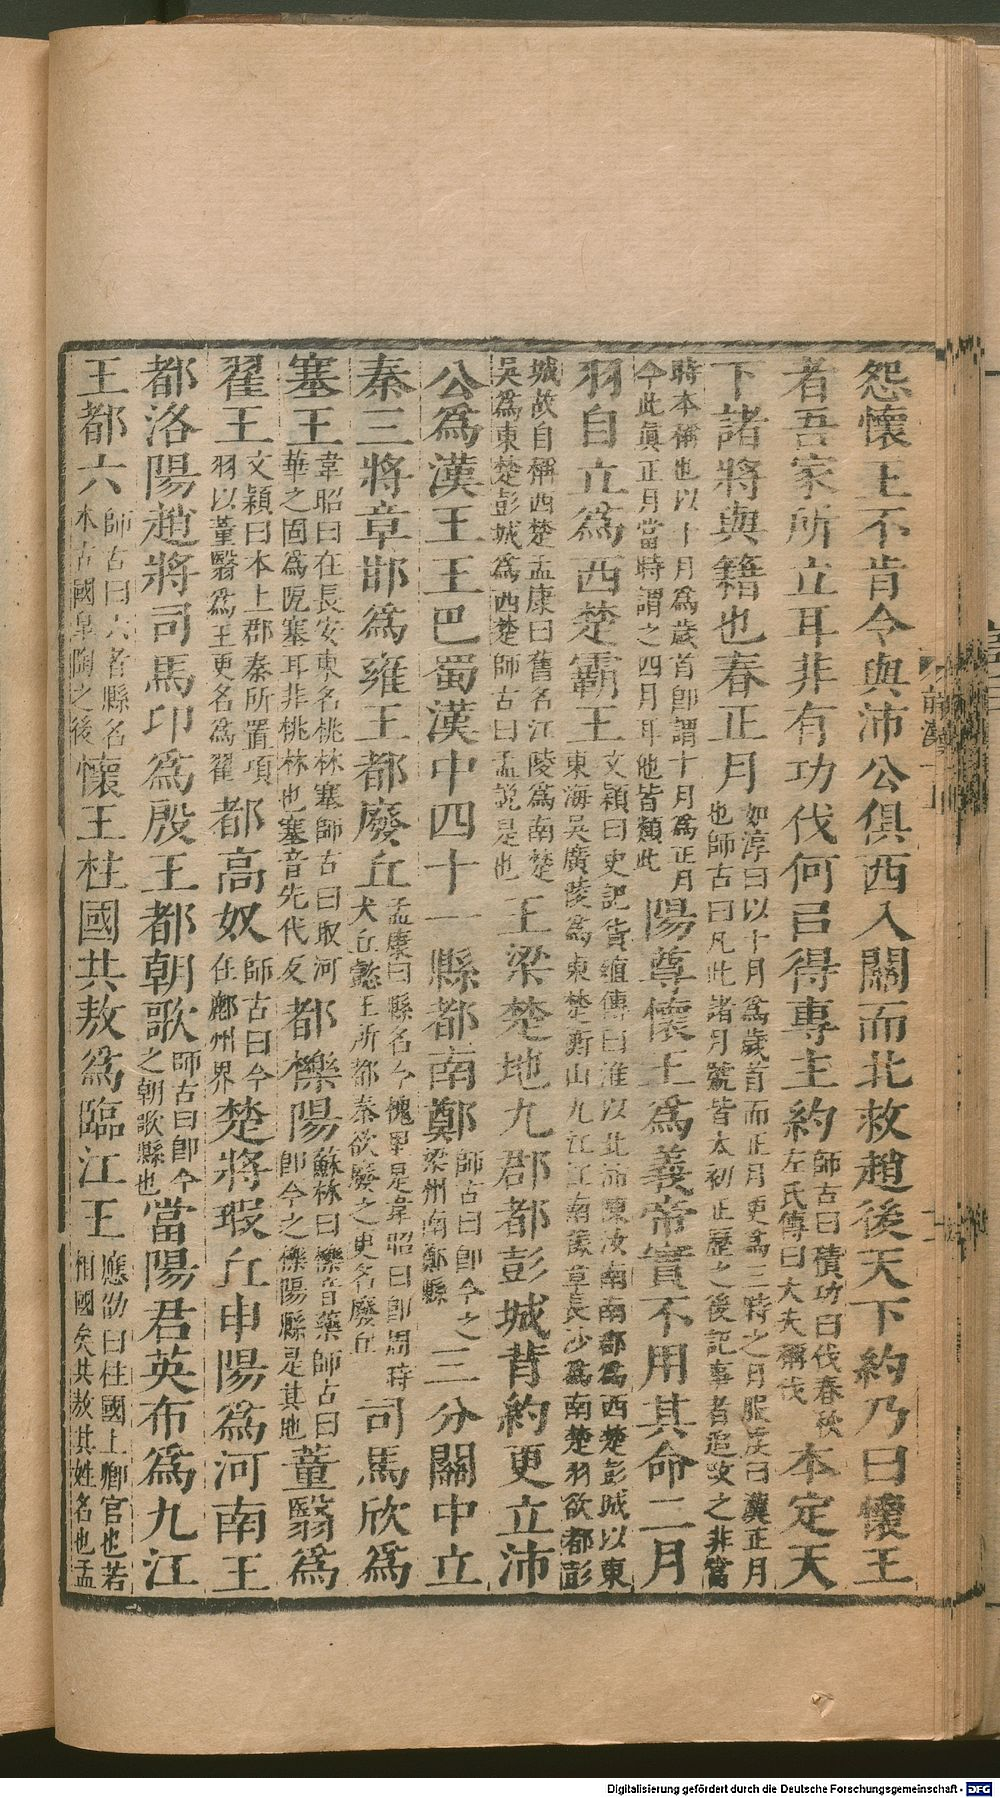 怨懷王不肯令與沛公俱西入關而北救趙後天下約乃曰懷王
者吾家所立耳非有功伐何㠯得專主約師古曰積功曰伐春秋左氏傳曰大夫稱伐本定天
下諸將與籍也春正月如淳曰以十月爲歲首而正月更爲三時之月服虔曰漢正月也師古曰凡此諸月號皆太初正歷之後記事者追改之非當
時本稱也以十月爲歲首即謂十月爲正月今此眞正月當時謂之四月耳他皆類此陽尊懷王爲義帝實不用其命二月
羽自立爲西楚霸王文穎曰史記貨殖傳曰淮以北沛陳汝南南郡爲西楚彭城以東東海吳廣陵爲東楚衡山九江江南豫章長沙爲南楚羽欲都彭
城故自稱西楚孟康曰舊名江陵爲南楚吳爲東楚彭城爲西楚師古曰孟説是也王梁楚地九郡都彭城背約更立沛
公爲漢王王巴蜀漢中四十一縣都南鄭師古曰即今之梁州南鄭縣三分關中立
秦三將章邯爲雍王都廢丘孟康曰縣名今槐里是韋昭曰即周時犬丘懿王所都秦欲廢之更名廢丘司馬欣爲
塞王韋昭曰在長安東名桃林塞師古曰取河華之固爲阨塞耳非桃林也塞音先代反都櫟陽蘇林曰櫟音藥師古曰即今之櫟陽縣是其地董翳爲
翟王文穎曰本上郡秦所置項羽以董翳爲王更名爲翟都高奴師古曰今在鄜州界楚將瑕丘申陽爲河南王
都洛陽趙將司馬卬爲殷王都朝歌師古曰即今之朝歌縣也當陽君英布爲九江
王都六師古曰六者縣名本古國皐陶之後懷王柱國共敖爲臨江王應劭曰柱國上卿官也若相國矣共敖其姓名也孟
前漢
Digitalisierung gefördert durch die Deutsche Forschungsgemeinschaft - DFG